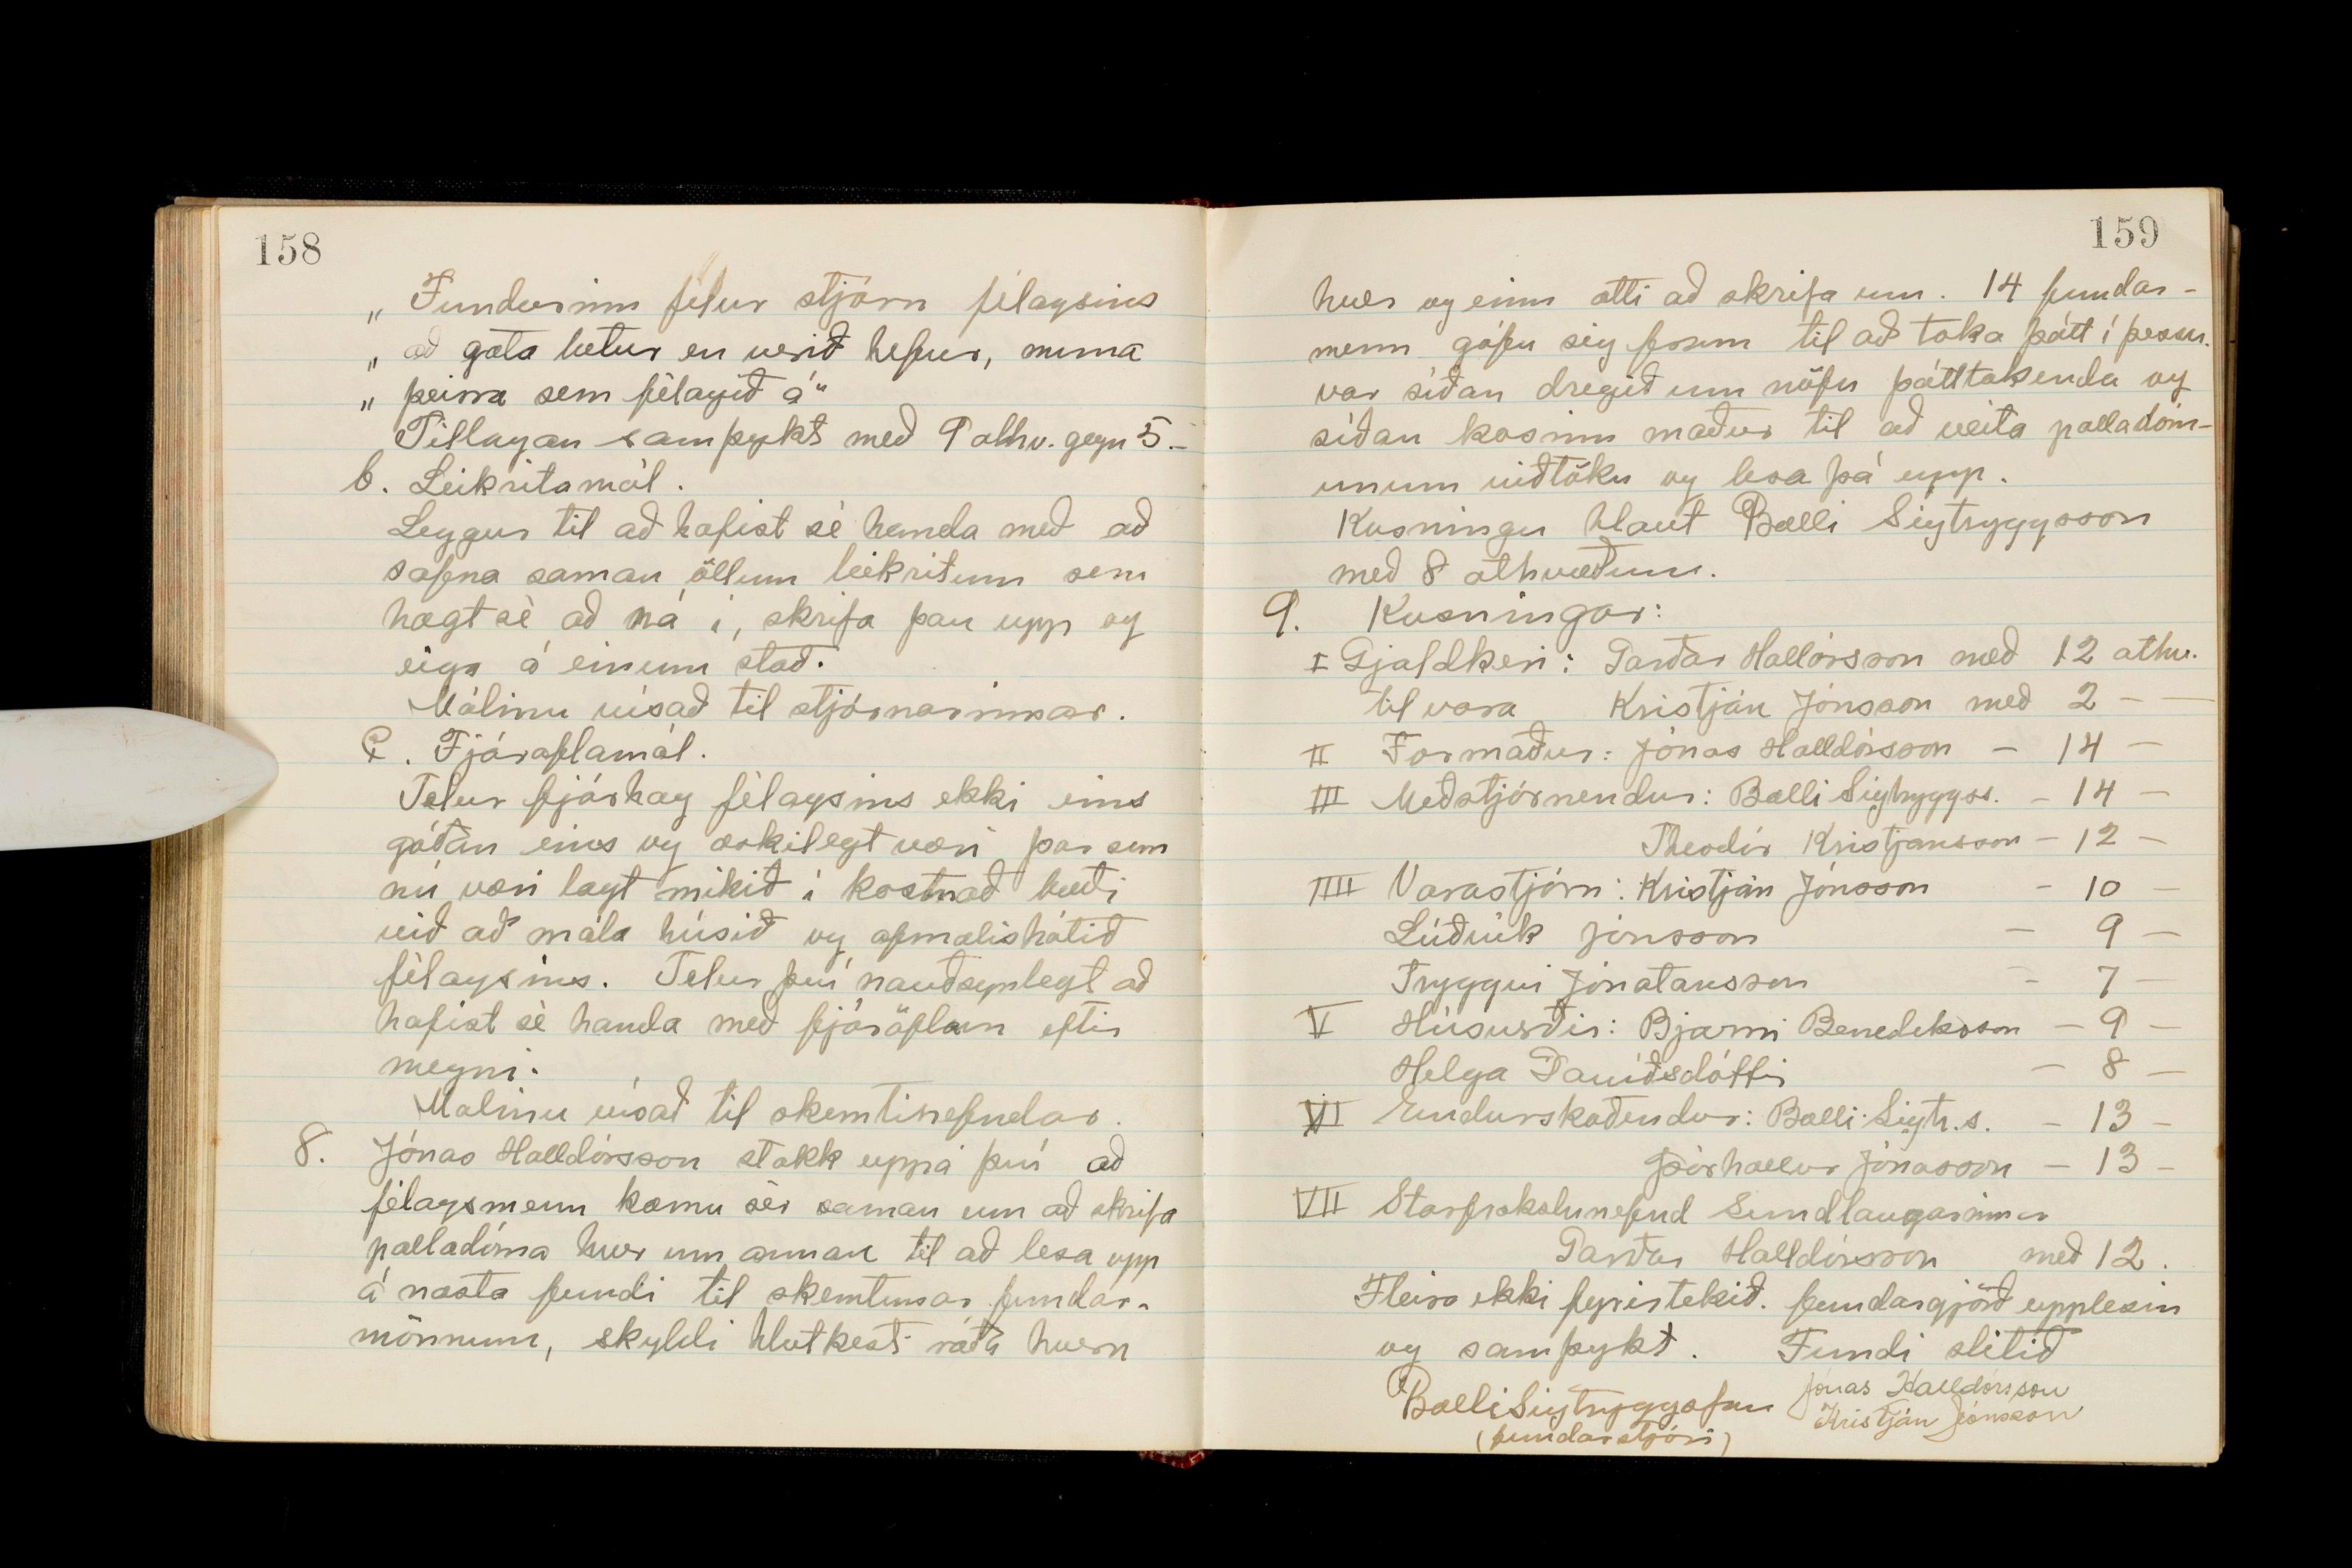 158
„ Fundurinn felur stjórn félagsins
„ að gæta betur en verið hefur, muna
„ þeirra sem félagið á"
Tillagan samþykt með 9 athv. gegn 5.-
b. Leikritamál.
Leggur til að hafist sé handa með að
safna saman öllum leikritum sem
hægt sé að ná í, skrifa þau upp og
eiga á einum stað.
Málinu vísað til stjórnarinnar.
c. Fjáraflamál.
Telur fjárhag félagsins ekki eins
góðan eins og æskilegt væri þar sem
nú væri lagt mikið í kostnað bæði
við að mála húsið og afmælishátið
félagsins. Telur því nauðsynlegt að
hafist sé handa með fjáröflun eftir
megni.
Málinu vísað til skemtinefndar.
8. Jónas Halldórsson stakk uppá því að
félagsmenn kæmu sér saman um að skrifa
palladóma hver um annan til að lesa upp
á næsta fundi til skemtunar fundar-
mönnum, skyldi hlutkesti ráða hvern
159
hver og einn ætti að skrifa um. 14 fundar-
menn gáfu sig fram til að taka þátt í þessu.
var síðan dregið um nöfn þátttakenda og
síðan kosinn maður til að veita palladóm-
unum viðtöku og lesa þá upp.
Kosningu hlaut Balli Sigtryggsson
með 8 athvæðum.
9. Kosningar:
I Gjaldkeri: Garðar Hallórsson með 12 athv.
til vara Kristján Jónsson með 2 - -
II Formaður: Jónas Halldórsson - 14 -
III Meðstjórnendur: Balli Sigtryggss. - 14 -
Theodór Kristjansson - 12 -
IIII Varastjórn: Kristján Jónsson - 10 -
Lúðvík Jónsson - 9 -
Tryggvi Jónatansson - 7 -
V Húsverðir: Bjarni Benediksson - 9 -
Helga Davíðsdóttir - 8 -
VI Endurskoðendur: Balli Sigtr.s. - 13 -
Þórhallur Jónasson - 13 -
VII Starfrækslunefnd Sundlaugarinnar
Garðar Halldórsson með 12.
Fleira ekki fyrirtekið. fundargjörð upplesin
og samþykt. Fundi slitið
Balli Sigtryggsson Jónas Halldórsson
(fundarstjóri) Kristján Jónsson